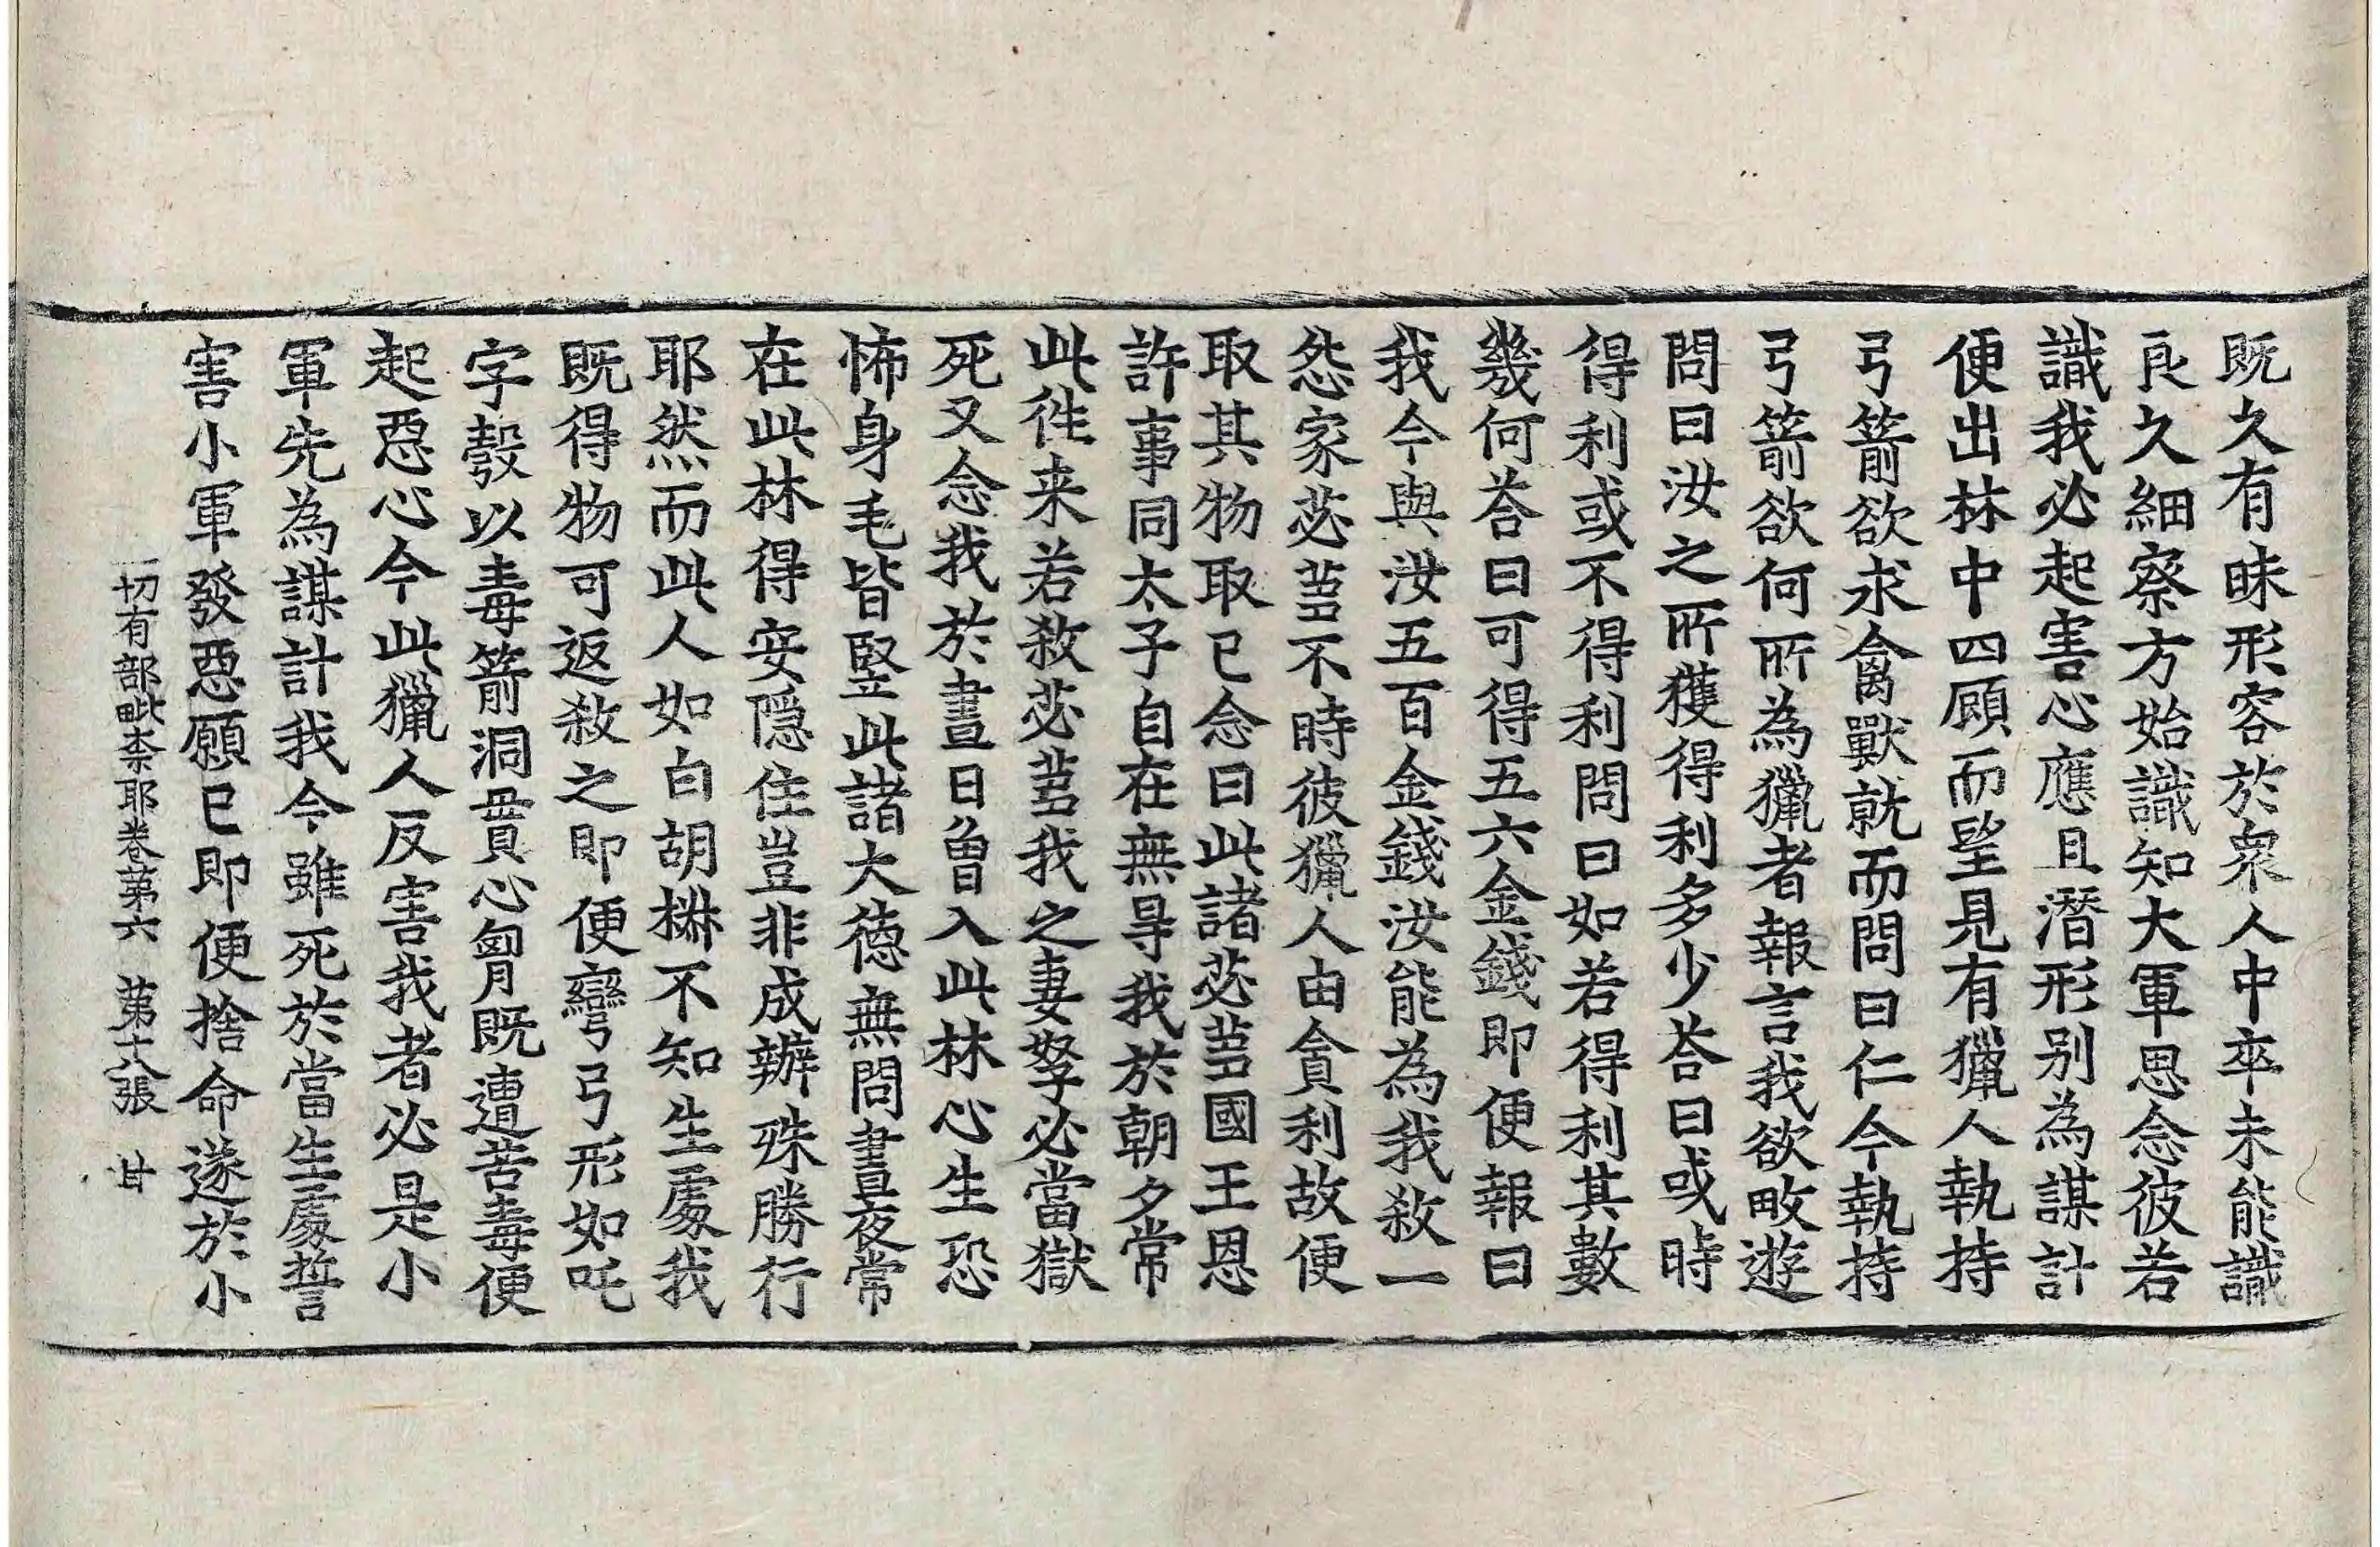 既久有昧形容於衆人中卒未能識
良久細察方始識知大軍思念彼若
識我必起害心應且潛形別為謀計
便出林中四顧而望見有獵人執持
弓箭欲求禽獸就而問曰仁今執持
弓箭欲何所為獵者報言我欲畋遊
問曰汝之所獲得利多少荅曰或時
得利或不得利問曰如若得利其數
幾何荅曰可得五六金錢即便報曰
我今與汝五百金錢汝能為我敎一
怨家苾蒭不時彼獵人由貪利故便
取其物取已念曰此諸苾蒭國王恩
許事同太子自在無㝵我於朝夕常
此徃来若敎苾蒭我之妻孥必當獄
死又念我於晝日曾入此林心生恐
怖身毛皆竪此諸大德無問晝夜常
在此林得安隱住豈非成辦殊勝行
耶然而此人如白胡椒不知生處我
既得物可返敎之即便彎弓形如吒
字彀以毒箭洞貫心胷既遭苦毒便
起惡心今此獵人反害我者必是小
軍先為謀計我今雖死於當生處誓
害小軍發惡願已即便捨命遂於小
一切有部毗柰耶卷第六　第十八張　甘